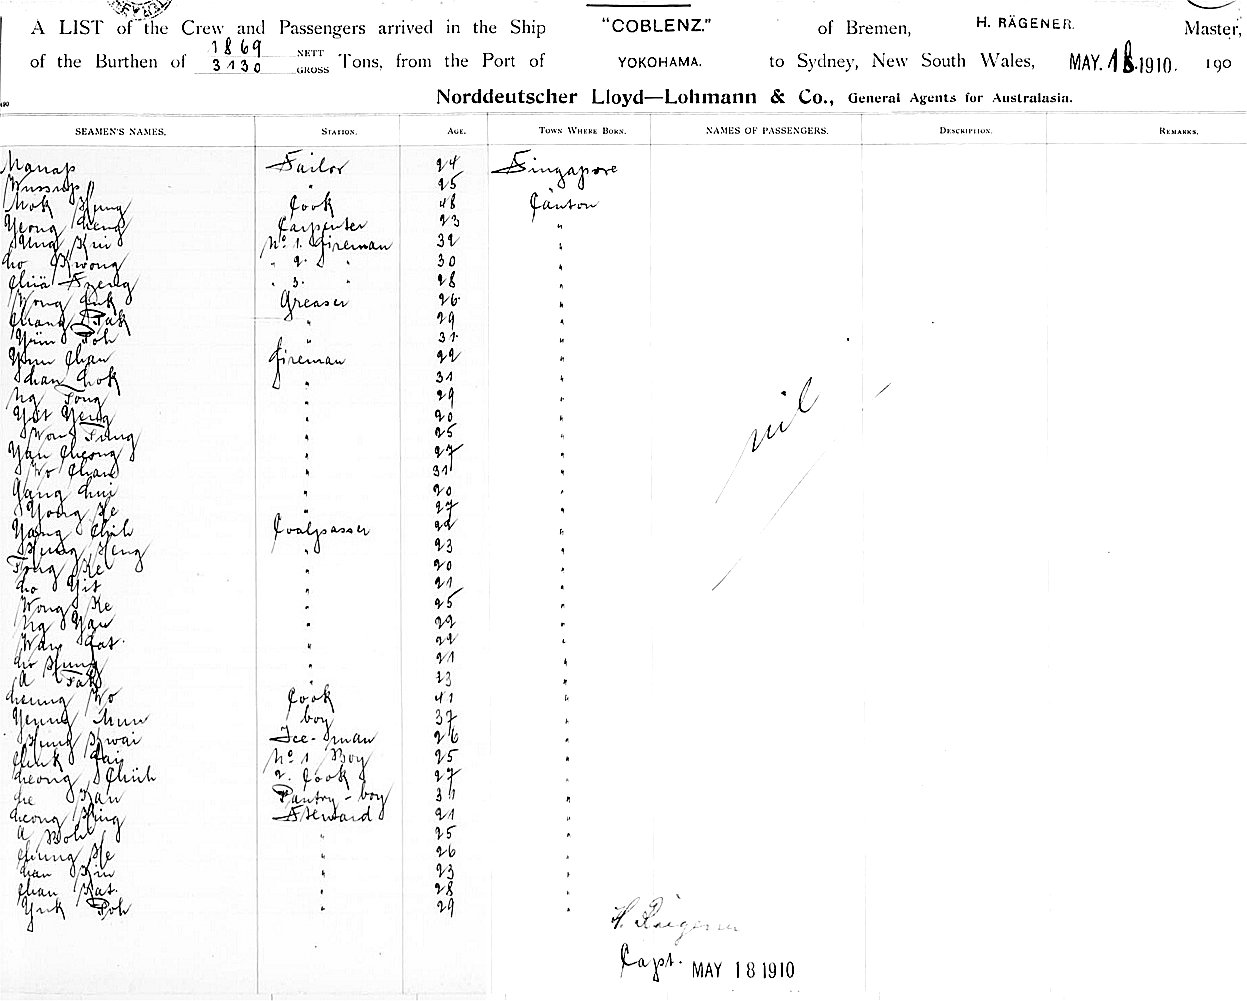 A LIST of the Crew and Passengers arrived in the Ship "COBLENZ." of Bremen, H. RÄGENER. Master,
of the Burthen of 1869 NETT 3130 GROSS Tons, from the Port of YOKOHAMA. to Sydney, New South Wales, MAY. 18 1910. 190
Norddeutscher Lloyd—Lohmann & Co., General Agents for Australasia.
SEAMEN'S NAMES. STATION. AGE. TOWN WHERE BORN. NAMES OF PASSENGERS. DESCRIPTION. REMARKS.
Manap Sailor 24 Singapore
" 25
Mok Hung Cook 48 Canton
Yeong Cheng Carpenter 23 "
No. 1. Fireman 32 "
Ho Kwong " 2. " 30 "
" 3. " 28 "
Wong Greaser 26 "
Chang Tak " 29 "
Yün Poh " 31 "
Yun Chan Fireman 22 "
Chan Hok " 31 "
Ng Tong " 29 "
Yat Yeng " 20 "
Won Tung " 25 "
Yau Cheong " 27 "
Wo Chan " 31 "
" 20 "
Yong He " 27 "
Yong Coalpasser 22 "
Hung Heng " 23 "
Tong Ke " 20 "
Ho Yit " 21 "
Wong Ke " 25 "
Ng Yau " 22 "
" 22 "
Ho Hung " 21 "
A Tak " 23 "
Wo Cook 41 "
Yeung boy 37 "
Ice-man 26 "
No 1 Boy 25 "
2. Cook 27 "
Pantry-boy 31 "
Steward 21 "
A " 25 "
Chung He " 26 "
" 23 "
Chan Kat " 28 "
Yuk Poh " 29 "
nil
H. Rägener
Capt. MAY 18 1910